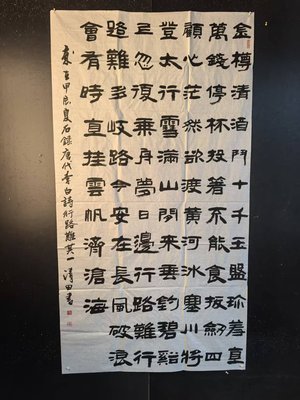 金樽清酒鬥十千玉盤珎羞直
萬錢停杯投箸不能食拔劍四
顧心茫然欲渡黃河冰塞川將
登太行雪滿山閒來垂釣碧谿
上忽復乘舟夢日邊行路難行
路難多岐路今安在長風破浪
會有時直挂雲帆濟滄海
甲辰夏 錄唐代李白詩行路難其一 清田書